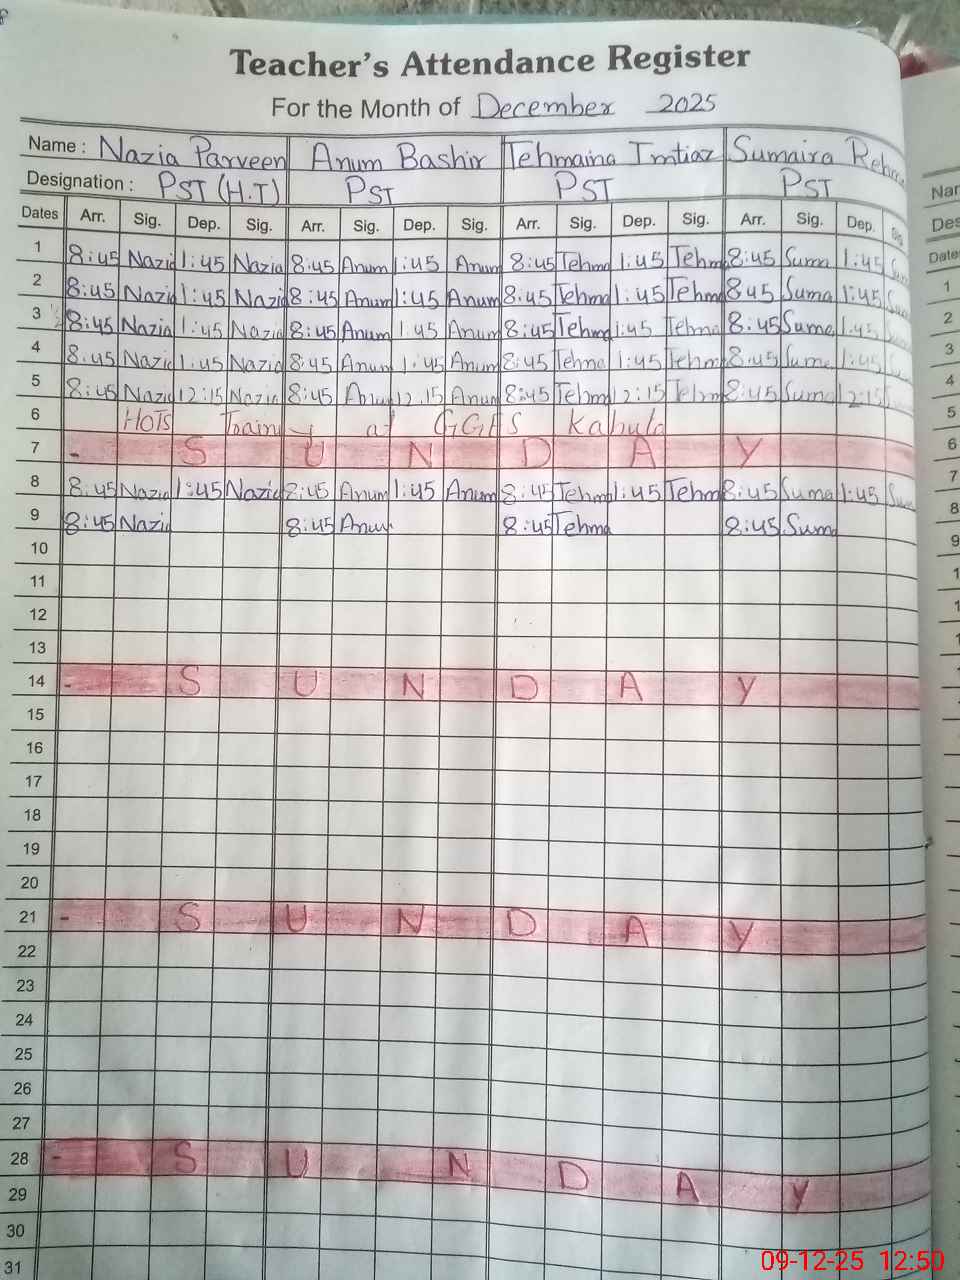 Teacher's Attendance Register
For the Month of December 2025
Name : Nazia Parveen Anum Bashir Tehmaina Imtiaz Sumaira
Designation : PST (H.T) PST PST PST
Dates Arr. Sig. Dep. Sig. Arr. Sig. Dep. Sig. Arr. Sig. Dep. Sig. Arr. Sig. Dep. Sig.
1 8:45 Nazia 1:45 Nazia 8:45 Anum 1:45 Anum 8:45 Tehma 1:45 Tehm 8:45 Suma 1:45
2 8:45 Nazia 1:45 Nazia 8:45 Anum 1:45 Anum 8:45 Tehma 1:45 Tehma 8:45 Suma 1:45
3 8:45 Nazia 1:45 Nazia 8:45 Anum 1:45 Anum 8:45 Tehma 1:45 Tehma 8:45 Suma 1:45
4 8:45 Nazia 1:45 Nazia 8:45 Anum 1:45 Anum 8:45 Tehma 1:45 Tehm 8:45 Suma 1:45
5 8:45 Nazia 12:15 Nazia 8:45 Anum 12.15 Anum 8:45 Tehma 12:15 Tehm 8:45 Suma 12:15
6 HOTs Training at GGES Kabula
7 - S U N D A Y
8 8:45 Nazia 1:45 Nazia 8:45 Anum 1:45 Anum 8:45 Tehma 1:45 Tehm 8:45 Suma 1:45
9 8:45 Nazia 8:45 Anum 8:45 Tehma 8:45 Suma
10
11
12
13
14 - S U N D A Y
15
16
17
18
19
20
21 - S U N D A Y
22
23
24
25
26
27
28 - S U N D A Y
29
30
31
Nar
Des
Date
1
2
3
4
5
6
7
8
9
09-12-25 12:50